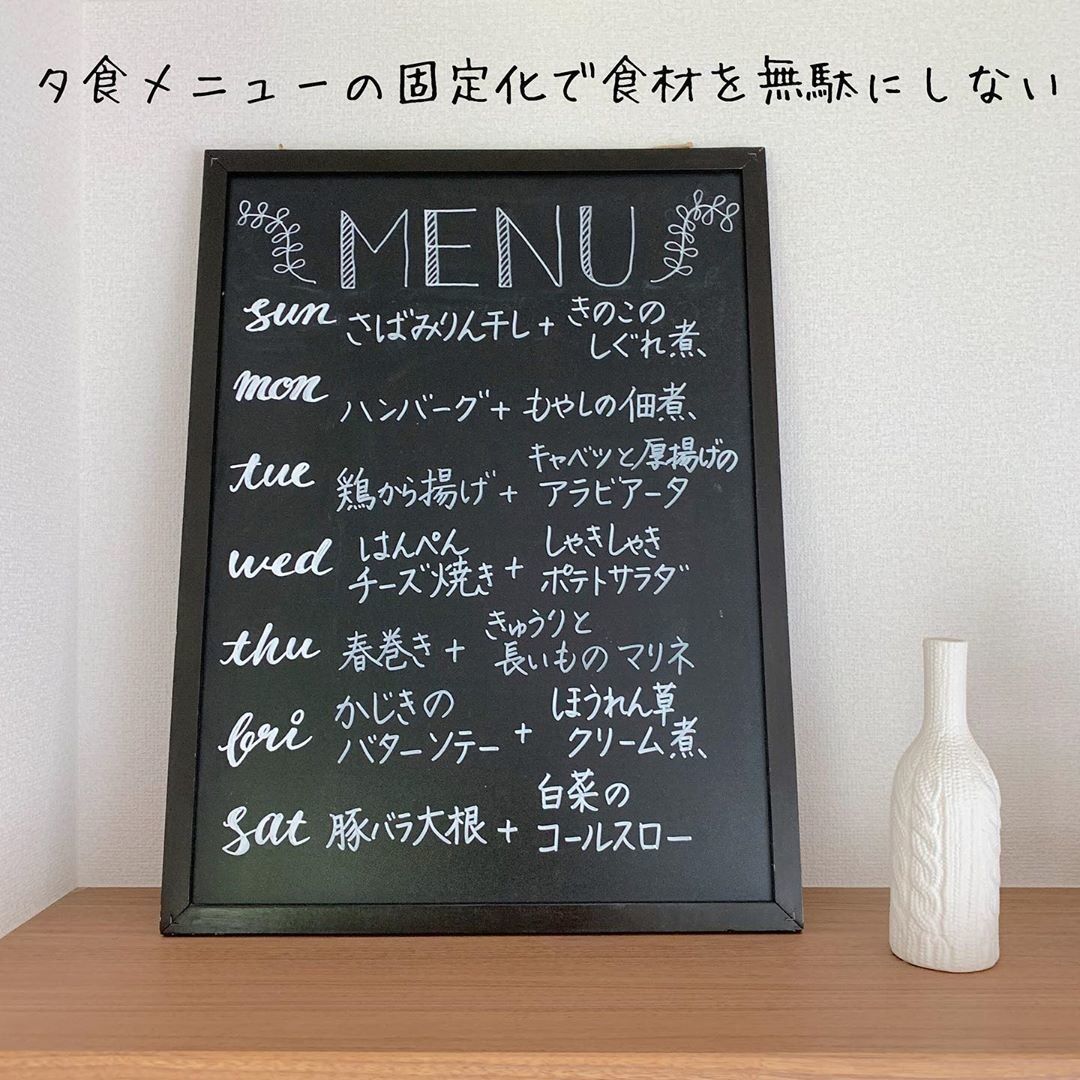 夕食メニューの固定化で食材を無駄にしない
MENU
sun さばみりん干し + きのこの
しぐれ煮
mon ハンバーグ + もやしの佃煮
tue 鶏から揚げ + キャベツと厚揚げの
アラビアータ
wed はんぺん
チーズ焼き + しゃきしゃき
ポテトサラダ
thu 春巻き + きゅうりと
長いものマリネ
fri かじきの
バターソテー + ほうれん草
クリーム煮
sat 豚バラ大根 + 白菜の
コールスロー